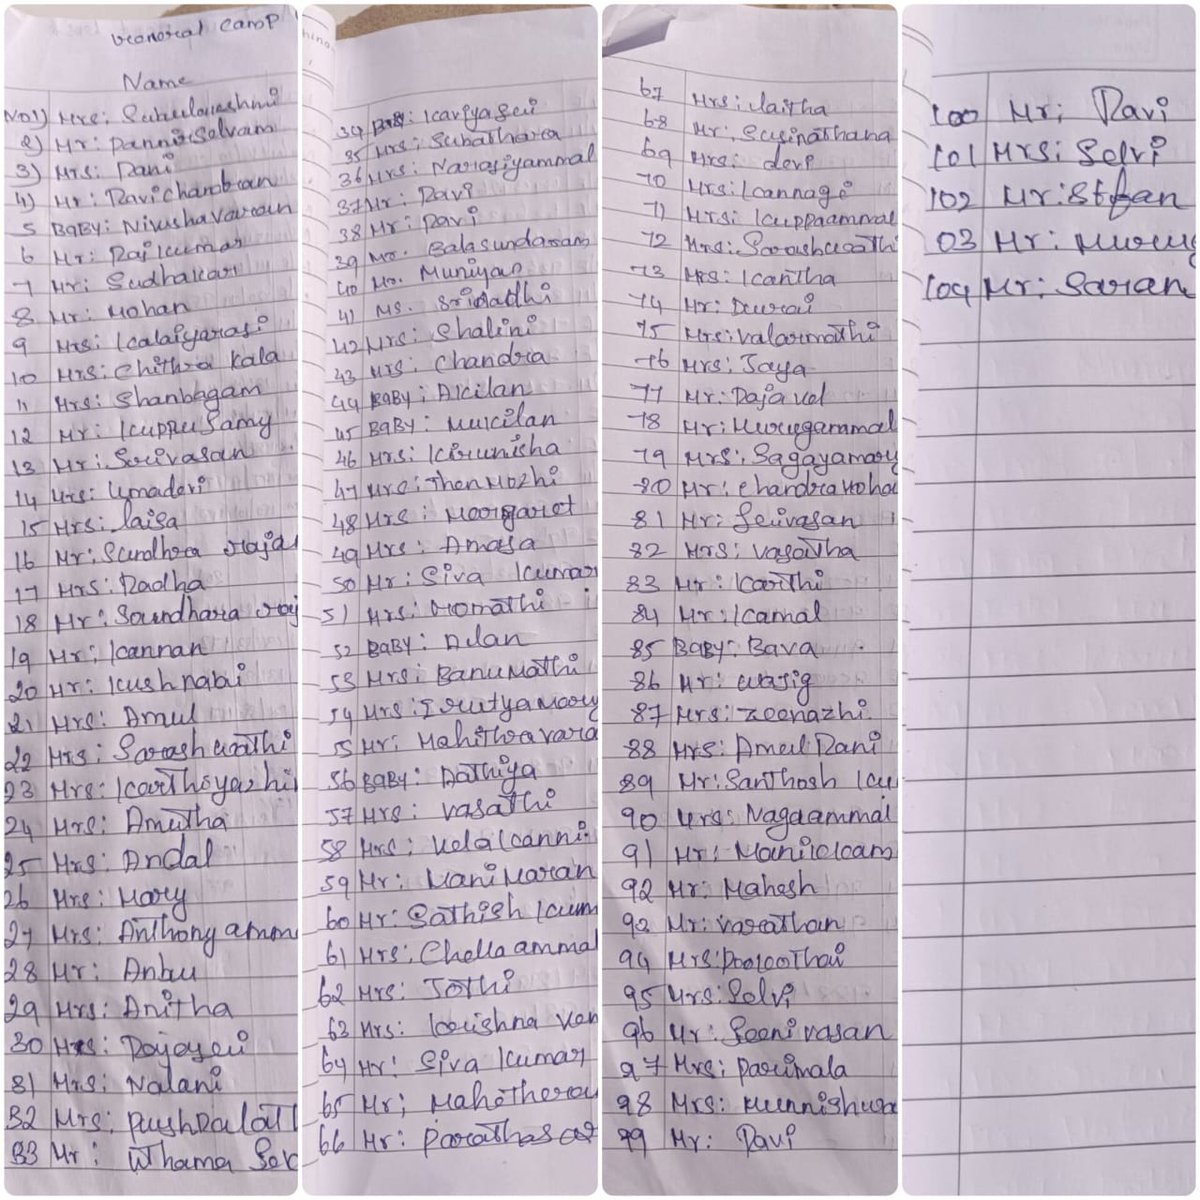 General Camp
Name
No1) Mrs: Subulakshmi
2) Mr: Pannir Salvam
3) Mrs: Rani
4) Mr: Ravichandran
5 BaBy: Nivusha
6 Mr: Rajkumar
7 Mr: Sudhakar
8 Mr: Mohan
9 Mrs: Kalaiyarasi
10 Mrs: Chithra Kala
11 Mrs: Shanbagam
12 Mr: Kuppu Samy
13 Mr: Srivasan
14 Mrs: Umadevi
15 Mrs: Laisa
16 Mr: Sundhra raja
17 Mrs: Radha
18 Mr: Soundhara raj
19 Mr: Kannan
20 Mr: Kushnabi
21 Mrs: Amul
22 Mrs: Sarashwathi
23 Mrs:
24 Mrs: Amutha
25 Mrs: Andal
26 Mrs: Mary
27 Mrs: Anthony amm
28 Mr: Anbu
29 Mrs: Anitha
30 Mrs:
31 Mrs: Nalani
32 Mrs: Pushpalat
33 Mr:
34 Baby: Kaviya Sri
35 Mrs: Subathara
36 Mrs: Narasiyammal
37 Mr: Ravi
38 Mr: Ravi
39 Mr. Balasundaram
40 Mr. Muniyan
41 Ms.
42 Mrs: Shalini
43 Mrs: Chandra
44 BaBy: Akilan
45 BaBy: Mukilan
46 Mrs: Kirunisha
47 Mrs: Then Mozhi
48 Mrs: Margaret
49 Mrs: Amasa
50 Mr: Siva Kumar
51 Mrs: Gomathi
52 BaBy:
53 Mrs: Banu Mathi
54 Mrs:
55 Mr: Mahithra vara
56 BaBy: Rathiya
57 Mrs: Vasathi
58 Mrs: Velakanni
59 Mr: Mani Maran
60 Mr: Sathish Kum
61 Mrs: Chella ammal
62 Mrs: Jothi
63 Mrs: krishna Ven
64 Mr: Siva Kumar
65 Mr;
66 Mr: Parathasar
67 Mrs: Laitha
68 Mr: Susinathana
69 Mrs: devi
70 Mrs: Kannagi
71 Mrs: Kuppaammal
72 Mrs: Sarashwathi
73 Mrs: Kantha
74 Mr: Durai
75 Mrs: Valarmathi
76 Mrs: Jaya
77 Mr: Rajavel
78 Mr: Murugammal
79 Mrs: Sagayamary
80 Mr: Chandra Moha
81 Mr: Srivasan
82 Mrs: Vasatha
83 Mr: Karthi
84 Mr: Kamal
85 BaBy: Bava
86 Mr: Wasig
87 Mrs: Zeenazhi
88 Mrs: Amul Rani
89 Mr: Santhosh Ku
90 Mrs: Nagaammal
91 Mr: Manikkam
92 Mr: Mahesh
93 Mr: Varathan
94 Mrs:
95 Mrs: Selvi
96 Mr: Seenivasan
97 Mrs: Parimala
98 Mrs:
99 Mr: Ravi
100 Mr; Ravi
101 Mrs: Selvi
102 Mr: Stfan
03 Mr: Murug
104 Mr: Saran